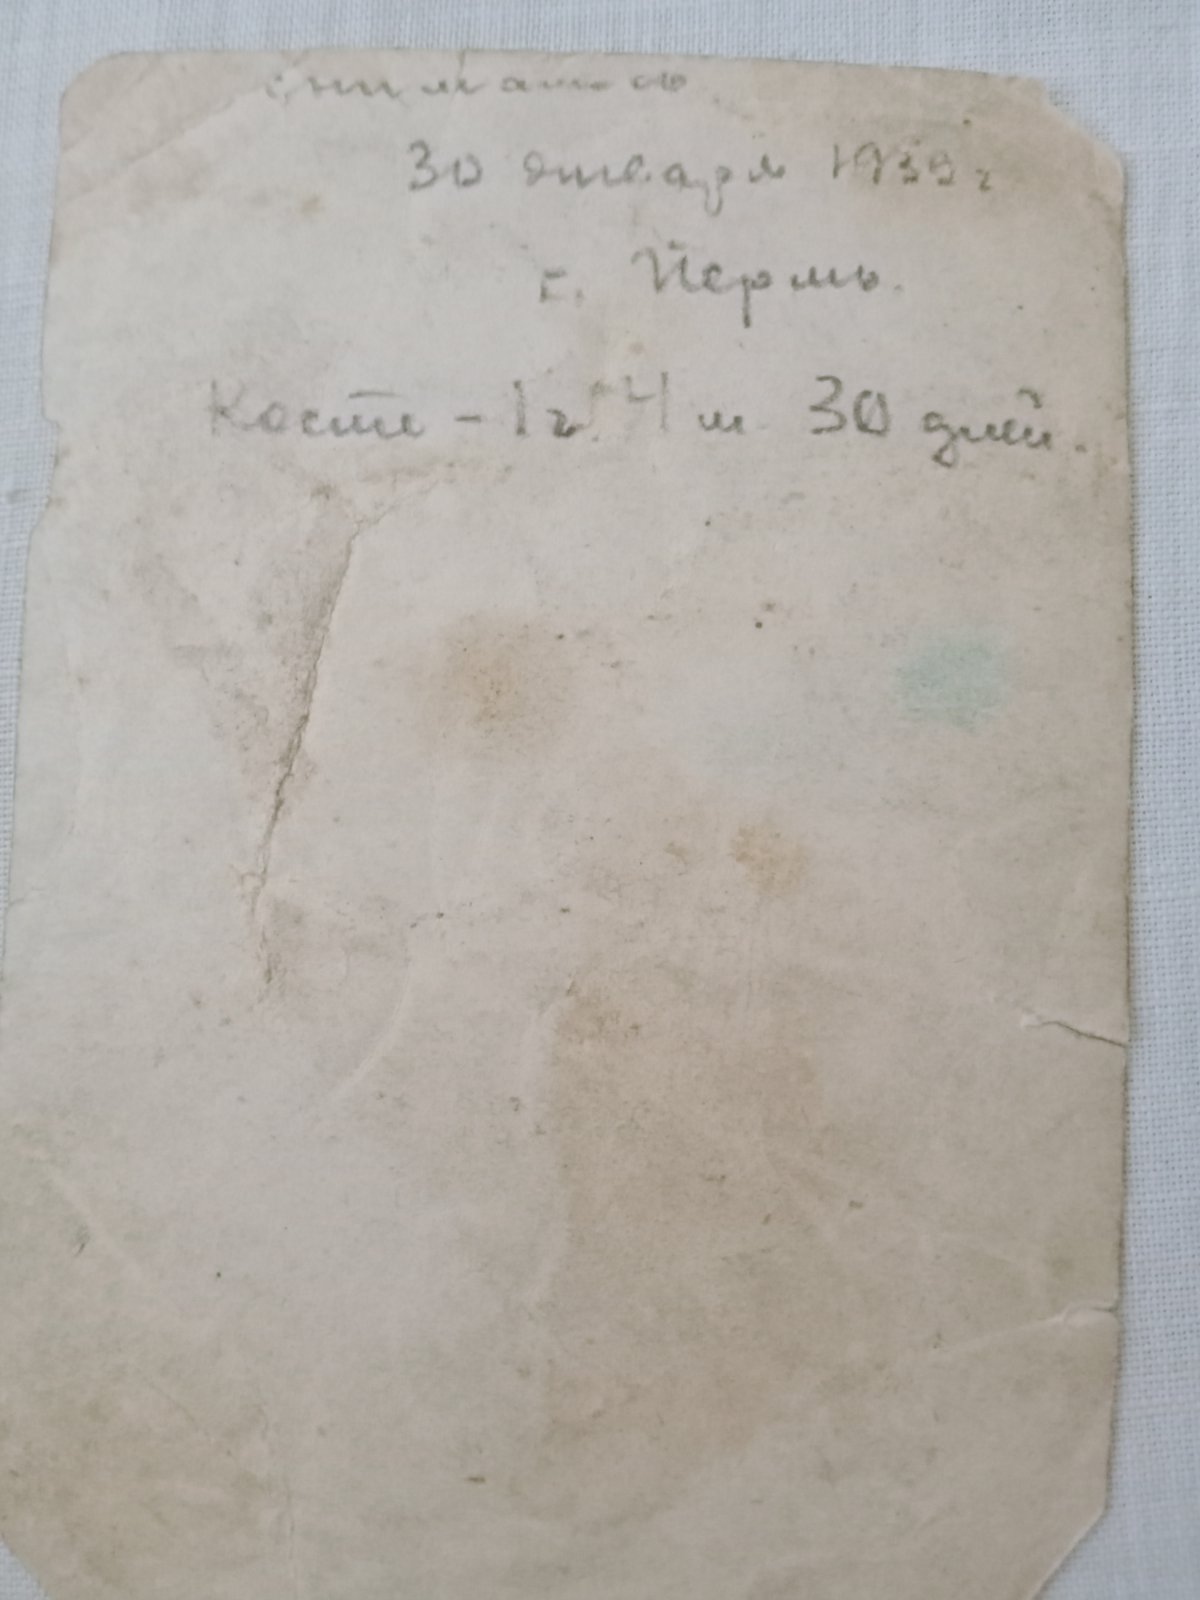 снимались
30 января 1939 г
г. Пермь.
Косте - 1 г. 4 м 30 дней.